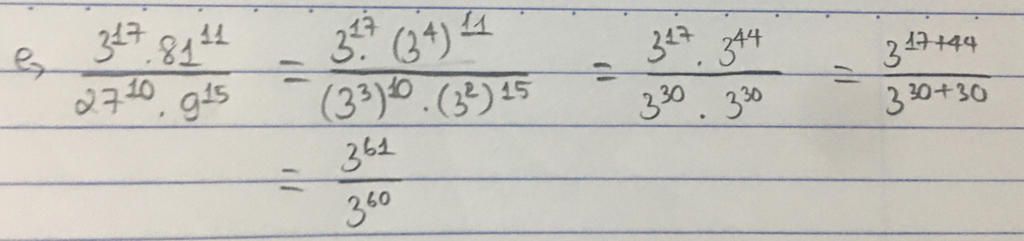 e, 3^17 . 81^11 / 27^10 . 9^15 = 3^17 . (3^4)^11 / (3^3)^10 . (3^2)^15 = 3^17 . 3^44 / 3^30 . 3^30 = 3^17+44 / 3^30+30
= 3^61 / 3^60